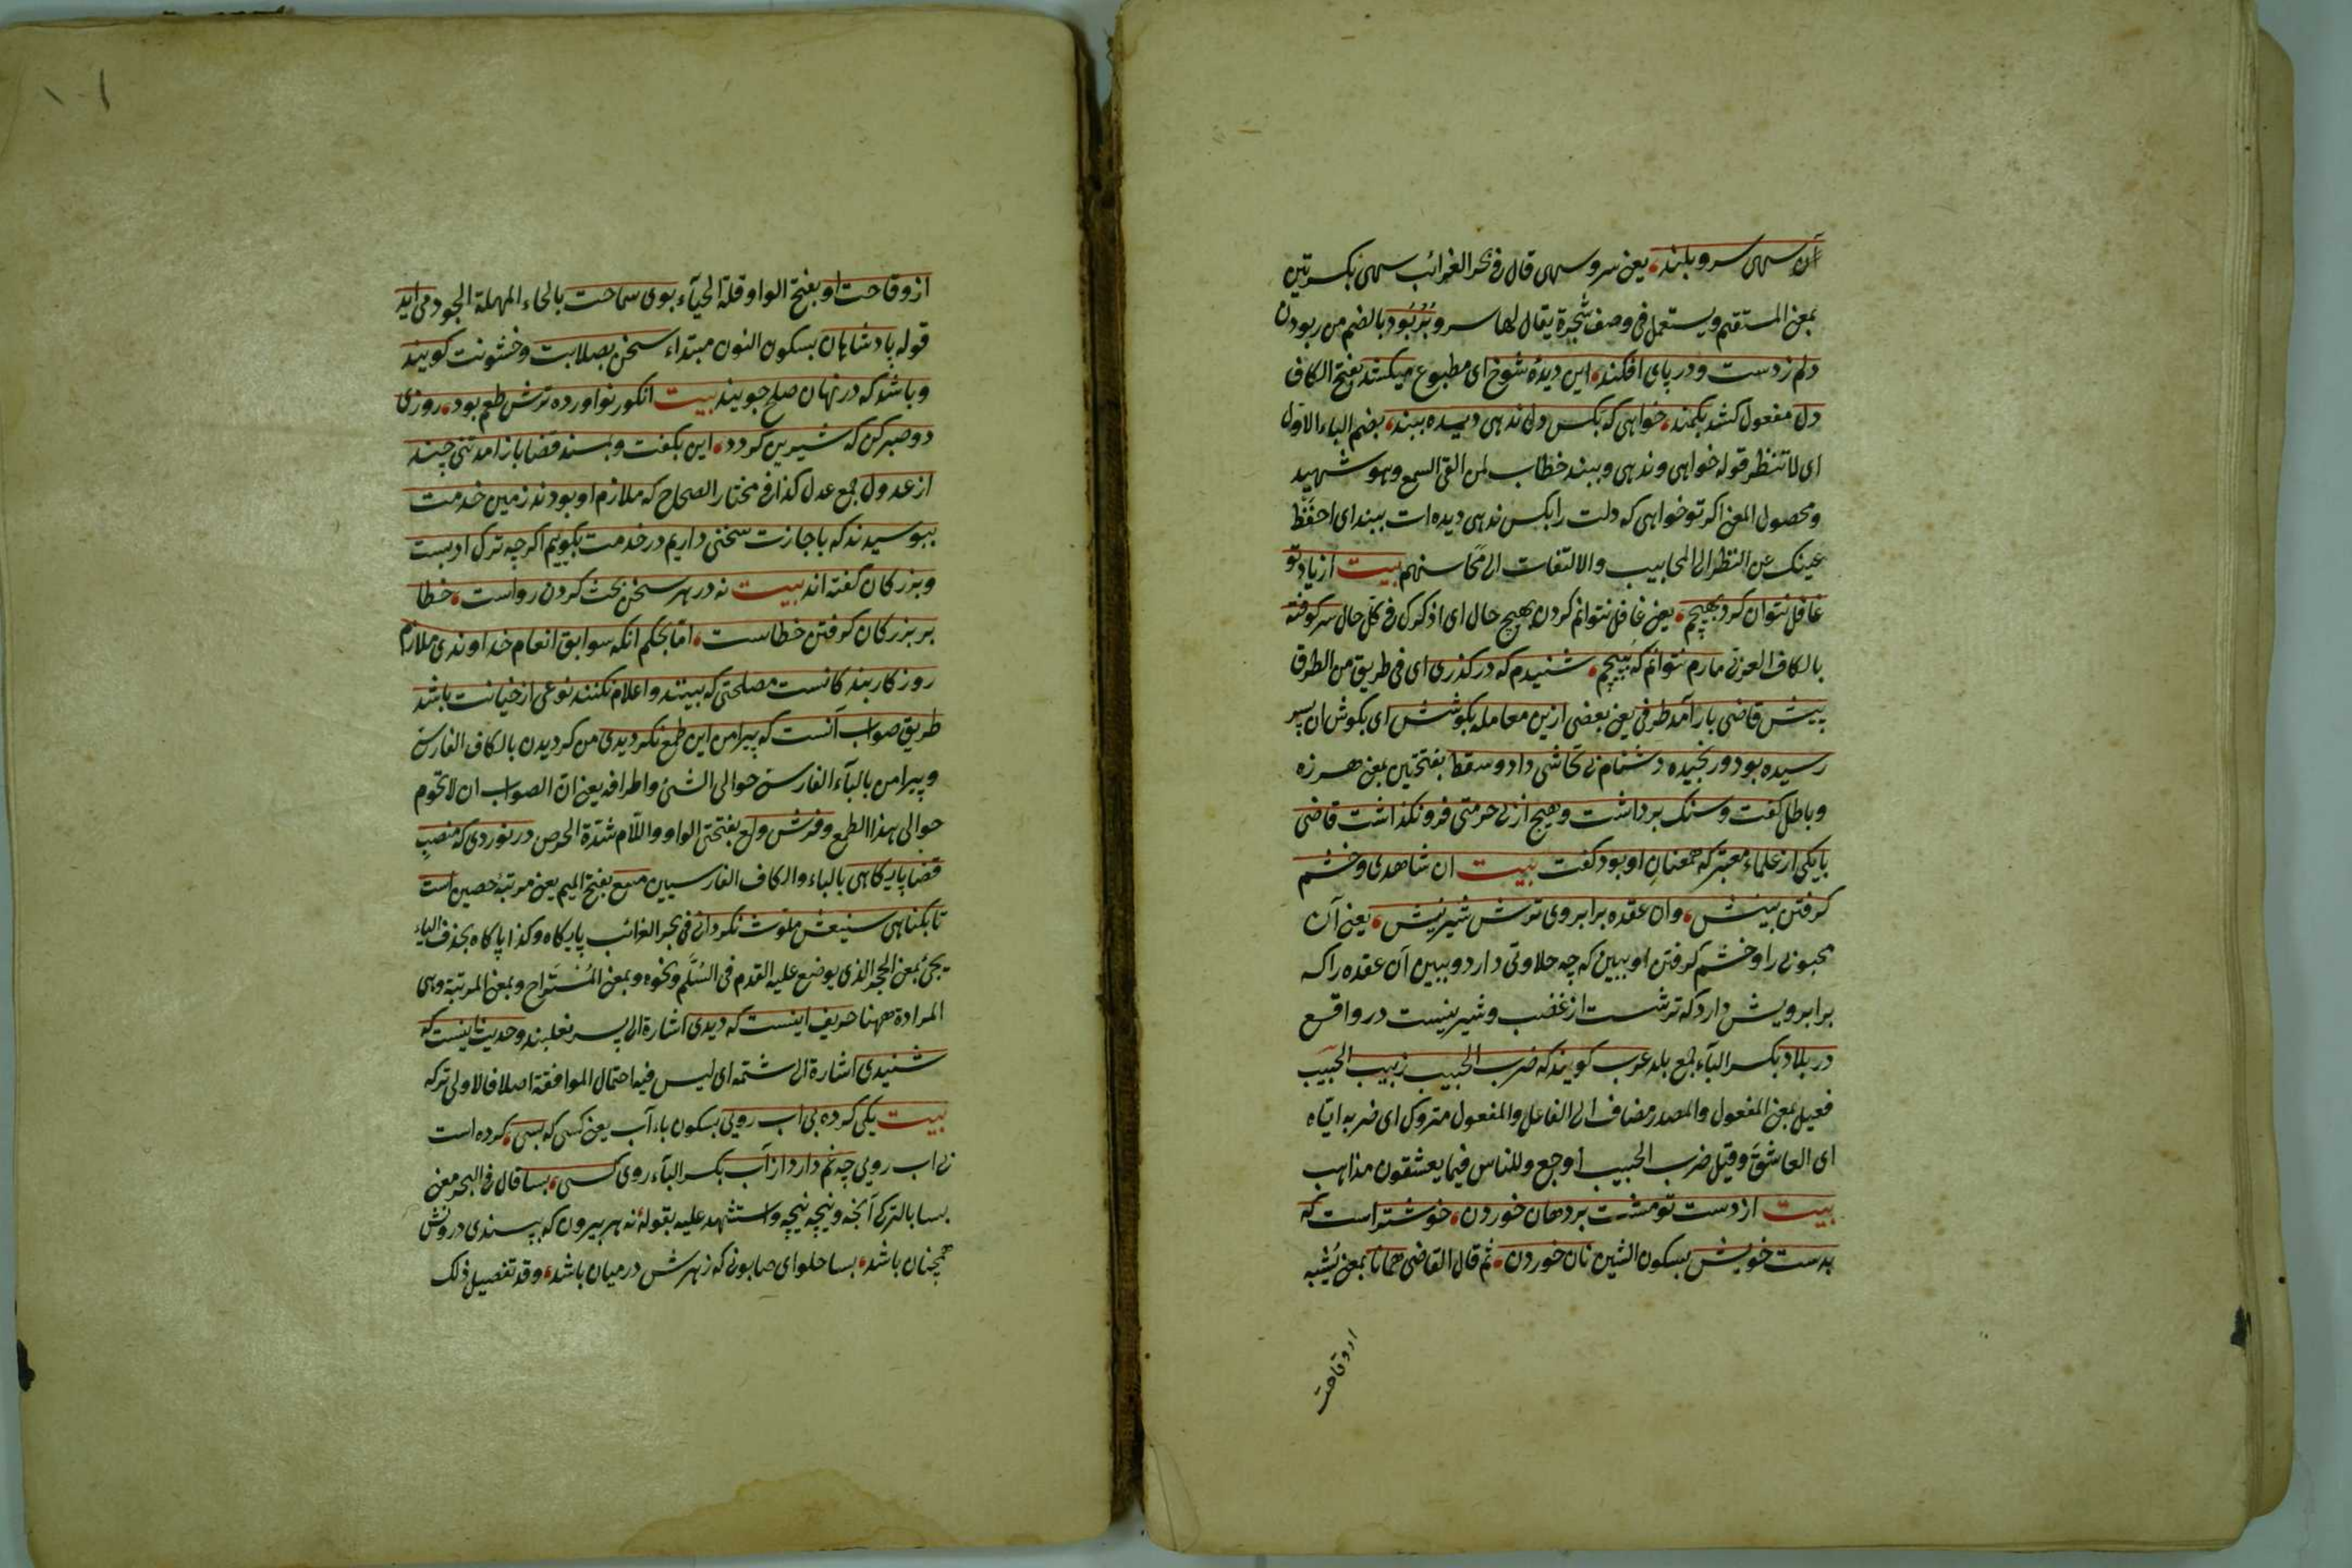 آن سهی سرو بلند، یعنی سرو سهی قال فی بحر الغرائب سهی بکسرتین
بمعنی المستقیم ویستعمل فی وصف شجرة یقال لها سرو بربود بالضم من ربودن
دلم زدست ودر پای افکند، این دیدهٔ شوخ ای مطبوع میکشد بفتح الکاف
دل مفعول کشد بکمند، خواهی که بکس دل ندهی دیده ببند، بضم الباء الاول
ای لا تنظر قوله خواهی وندهی وببند خطاب لمن القی السمع وهو شهید
ومحصول المعنی اکر تو خواهی که دلت را بکس ندهی دیده ات ببند ای احفظ
عینک عن النظر الی المحابیب والالتفات الی محاسنهم بیت از یاد تو
غافل نتوان کرد بهیچم، یعنی غافل نتوانم کردن بهیچ حال ای اذکرک فی کل حال سر کوفته
بالکاف العربی مارم نتوانم که بپیچم، شنیدم که در کذری ای فی طریق من الطرق
پیش قاضی باز آمد طرفی یعنی بعضی ازین معامله بکوشش ای بکوش ان پسر
رسیده بود ورنجیده دشنام بی تحاشی داد وسقط بفتحتین بمعنی هرزه
وباطل کفت وسنک برداشت وهیچ از بی حرمتی فرو نکذاشت قاضی
با یکی از علماء معتبر که همعنان او بود کفت بیت ان شاهدی وخشم
کرفتن بینش، وان عقده برابروی ترش شیرینش، یعنی آن
محبوبی را وخشم کرفتن او ببین که چه حلاوتی دارد وببین آن عقده را که
برابرویش دارد که ترشست از غضب وشیرینست در واقع
در بلاد بکسر الباء جمع بلد عرب کویند که ضرب الحبیب زبیب الحبیب
فعیل بمعنی المفعول والمصدر مضاف الی الفاعل والمفعول متروک ای ضربه ایاه
ای العاشق وقیل ضرب الحبیب اوجع وللناس فیما یعشقون مذاهب
بیت از دست تو مشت بر دهان خوردن، خوشتر است که
بدست خویش بسکون الشین نان خوردن، ثم قال القاضی همانا بمعنی یشبه
از وقاحت
از وقاحت او بفتح الواو قلة الحیاء بوی سماحت بالحاء المهملة الجود می اید
قوله پادشاهان بسکون النون مبتداء سخن بصلابت وخشونت کویند
وباشد که در نهان صلح جویند بیت انکور نو اورده ترش طعم بود، روزی
دو صبر کن که شیرین کردد، این بکفت وبمسند قضا باز امد تنی چند
از عدول جمع عدل کذا فی مختار الصحاح که ملازم او بودند زمین خدمت
ببوسیدند که باجازت سخنی داریم در خدمت بکوییم اکرچه ترک ادبست
وبزرکان کفته اند بیت نه در هر سخن بحث کردن رواست، خطا
بر بزرکان کرفتن خطاست، اما بحکم انکه سوابق انعام خداوندی ملازم
روزکار بندکانست مصلحتی که بینند واعلام نکنند نوعی از خیانت باشد
طریق صواب آنست که پیرامن این طمع نکردیدی من کردیدن بالکاف الفارسی
وپیرامن بالباء الفارسی حوالی الشئ واطرافه یعنی ان الصواب ان لا تحوم
حوالی هذا الطمع وفرش ولع بفتحتی الواو واللام شدة الحرص در نوردی که منصب
قضا پایکاهی بالباء والکاف الفارسیین منیع بفتح المیم یعنی مرتبه حصین است
تا بکناهی شنیعش ملوث نکردانی فی بحر الغرائب پایکاه وکذا پاکاه بحذف الیاء
یجئ بمعنی الحجر الذی یوضع علیه القدم فی السلم ونحوه وبمعنی المستراح وبمعنی المرتبة وهی
المرادة ههنا حریف اینست که دیدی اشارة الی پسر نعلبند وحدیث اینست که
شنیدی اشارة الی شتمه ای لیس فیه احتمال الموافقة اصلا فالاولی ترکه
بیت یکی کرده بی اب رویی بسکون باء آب یعنی کسی که بسی، کرده است
بی اب رویی چه غم دارد از آب بکسر الباء روی کسی، بسا قال فی البحر معنی
بسا بالترکی آنجه ونیچه نیچه واستشهد علیه بقوله نه هر بیرون که بپسندی درونش
همچنان باشد، بسا حلوای صابونی که زهرش در میان باشد، وقد تفصیل ذلک